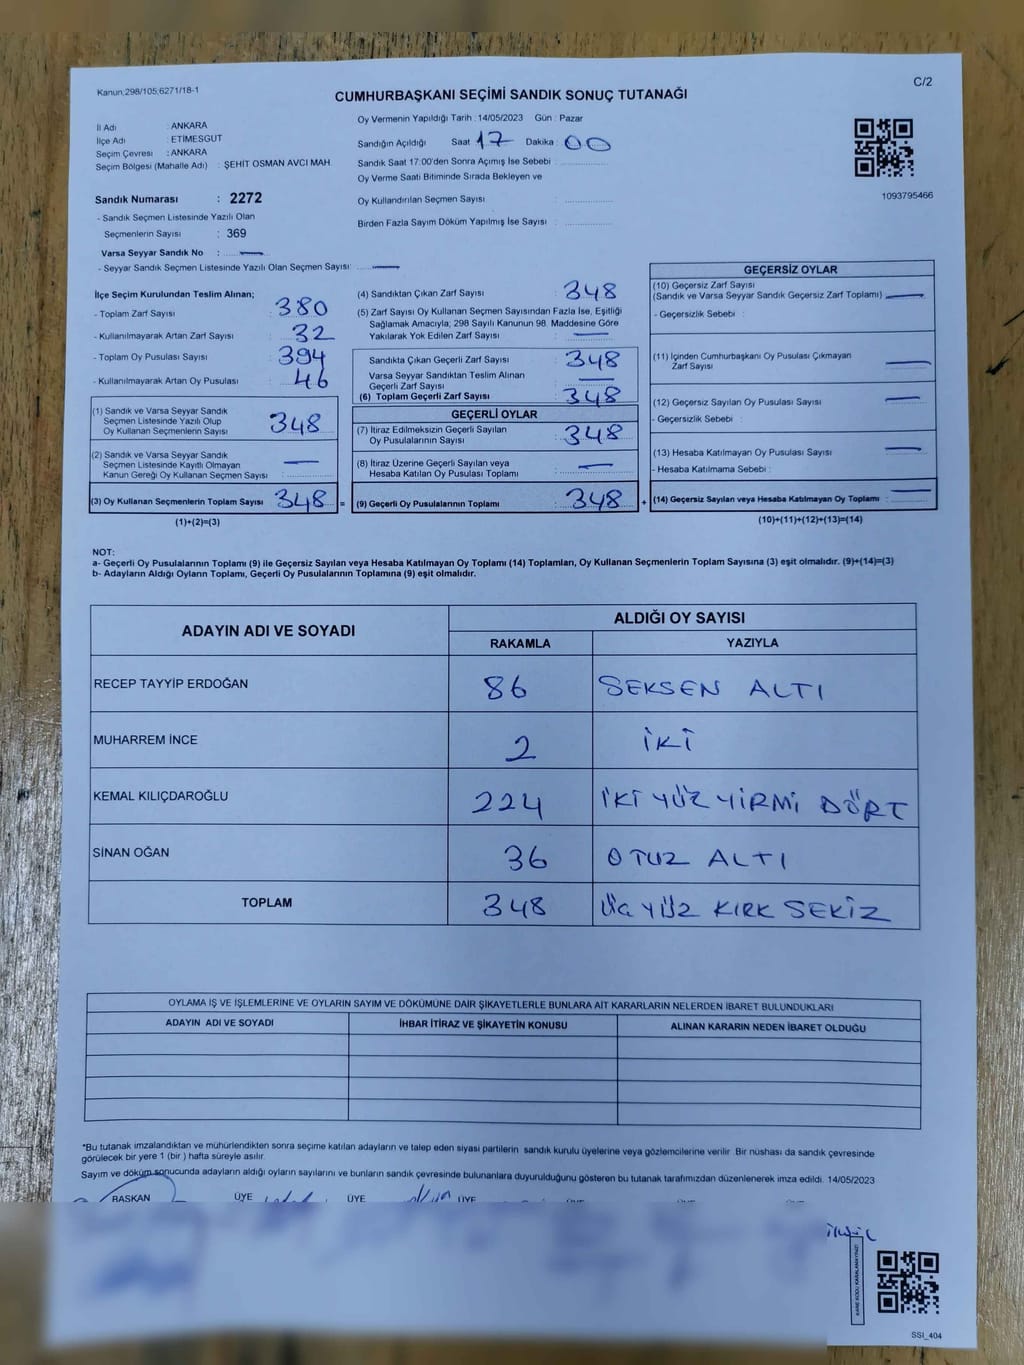 Kanun:298/105;6271/18-1
C/2
CUMHURBAŞKANI SEÇİMİ SANDIK SONUÇ TUTANAĞI
İl Adı : ANKARA
İlçe Adı : ETİMESGUT
Seçim Çevresi : ANKARA
Seçim Bölgesi (Mahalle Adı) : ŞEHİT OSMAN AVCI MAH.
Oy Vermenin Yapıldığı Tarih :14/05/2023 Gün : Pazar
Sandığın Açıldığı Saat : 17 Dakika : 00
Sandık Saat 17:00'den Sonra Açımış İse Sebebi :
Oy Verme Saati Bitiminde Sırada Bekleyen ve
Oy Kullandırılan Seçmen Sayısı :
Birden Fazla Sayım Döküm Yapılmış İse Sayısı :
1093795466
Sandık Numarası : 2272
- Sandık Seçmen Listesinde Yazılı Olan
Seçmenlerin Sayısı : 369
Varsa Seyyar Sandık No : —
- Seyyar Sandık Seçmen Listesinde Yazılı Olan Seçmen Sayısı: —
İlçe Seçim Kurulundan Teslim Alınan;
- Toplam Zarf Sayısı : 380
- Kullanılmayarak Artan Zarf Sayısı : 32
- Toplam Oy Pusulası Sayısı : 394
- Kullanılmayarak Artan Oy Pusulası : 46
(1) Sandık ve Varsa Seyyar Sandık
Seçmen Listesinde Yazılı Olup
Oy Kullanan Seçmenlerin Sayısı : 348
(2) Sandık ve Varsa Seyyar Sandık
Seçmen Listesinde Kayıtlı Olmayan
Kanun Gereği Oy Kullanan Seçmen Sayısı : —
(3) Oy Kullanan Seçmenlerin Toplam Sayısı : 348 =
(1)+(2)=(3)
(4) Sandıktan Çıkan Zarf Sayısı : 348
(5) Zarf Sayısı Oy Kullanan Seçmen Sayısından Fazla İse, Eşitliği
Sağlamak Amacıyla; 298 Sayılı Kanunun 98. Maddesine Göre
Yakılarak Yok Edilen Zarf Sayısı : —
Sandıkta Çıkan Geçerli Zarf Sayısı : 348
Varsa Seyyar Sandıktan Teslim Alınan
Geçerli Zarf Sayısı : —
(6) Toplam Geçerli Zarf Sayısı : 348
GEÇERLİ OYLAR
(7) İtiraz Edilmeksizin Geçerli Sayılan
Oy Pusulalarının Sayısı : 348
(8) İtiraz Üzerine Geçerli Sayılan veya
Hesaba Katılan Oy Pusulası Toplamı : —
(9) Geçerli Oy Pusulalarının Toplamı : 348 +
GEÇERSİZ OYLAR
(10) Geçersiz Zarf Sayısı
(Sandık ve Varsa Seyyar Sandık Geçersiz Zarf Toplamı) : —
- Geçersizlik Sebebi :
(11) İçinden Cumhurbaşkanı Oy Pusulası Çıkmayan
Zarf Sayısı : —
(12) Geçersiz Sayılan Oy Pusulası Sayısı : —
- Geçersizlik Sebebi :
(13) Hesaba Katılmayan Oy Pusulası Sayısı : —
- Hesaba Katılmama Sebebi :
(14) Geçersiz Sayılan veya Hesaba Katılmayan Oy Toplamı : —
(10)+(11)+(12)+(13)=(14)
NOT:
a- Geçerli Oy Pusulalarının Toplamı (9) ile Geçersiz Sayılan veya Hesaba Katılmayan Oy Toplamı (14) Toplamları, Oy Kullanan Seçmenlerin Toplam Sayısına (3) eşit olmalıdır. (9)+(14)=(3)
b- Adayların Aldığı Oyların Toplamı, Geçerli Oy Pusulalarının Toplamına (9) eşit olmalıdır.
ADAYIN ADI VE SOYADI
ALDIĞI OY SAYISI
RAKAMLA YAZIYLA
RECEP TAYYİP ERDOĞAN 86 SEKSEN ALTI
MUHARREM İNCE 2 İKİ
KEMAL KILIÇDAROĞLU 224 İKİ YÜZ YİRMİ DÖRT
SİNAN OĞAN 36 OTUZ ALTI
TOPLAM 348 ÜÇ YÜZ KIRK SEKİZ
OYLAMA İŞ VE İŞLEMLERİNE VE OYLARIN SAYIM VE DÖKÜMÜNE DAİR ŞİKAYETLERLE BUNLARA AİT KARARLARIN NELERDEN İBARET BULUNDUKLARI
ADAYIN ADI VE SOYADI İHBAR İTİRAZ VE ŞİKAYETİN KONUSU ALINAN KARARIN NEDEN İBARET OLDUĞU
*Bu tutanak imzalandıktan ve mühürlendikten sonra seçime katılan adayların ve talep eden siyasi partilerin sandık kurulu üyelerine veya gözlemcilerine verilir. Bir nüshası da sandık çevresinde
görülecek bir yere 1 (bir ) hafta süreyle asılır.
Sayım ve döküm sonucunda adayların aldığı oyların sayılarını ve bunların sandık çevresinde bulunanlara duyurulduğunu gösteren bu tutanak tarafımızdan düzenlenerek imza edildi. 14/05/2023
BAŞKAN ÜYE ÜYE ÜYE
KARE KODU KARALAMAYINIZ!
SSI_404